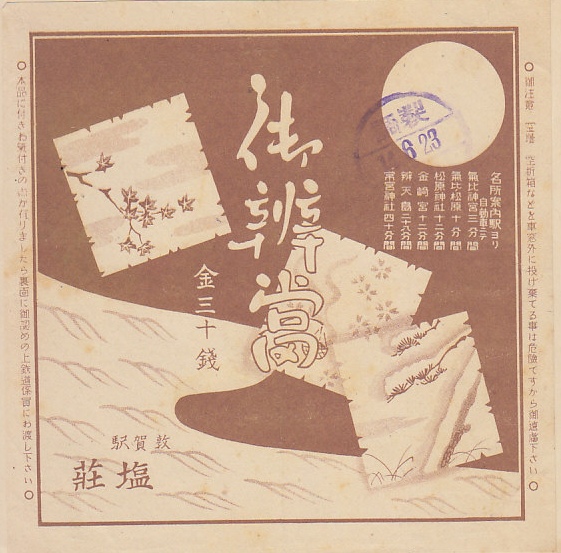 御辨當
金三十錢
名所案内駅ヨリ
自動車ニテ
氣比神宮三分間
氣比松原十分間
松原神社十二分間
金崎宮十二分間
辨天島二十六分間
常宮神社四十分間
製
6.23
敦賀駅
塩荘
空折箱などを車窓外に投げ棄てる事は危險ですから御遠慮下さい
本品に付きお氣付きの
ましたら裏面に御認めの上鉄道係員にお渡し下さい